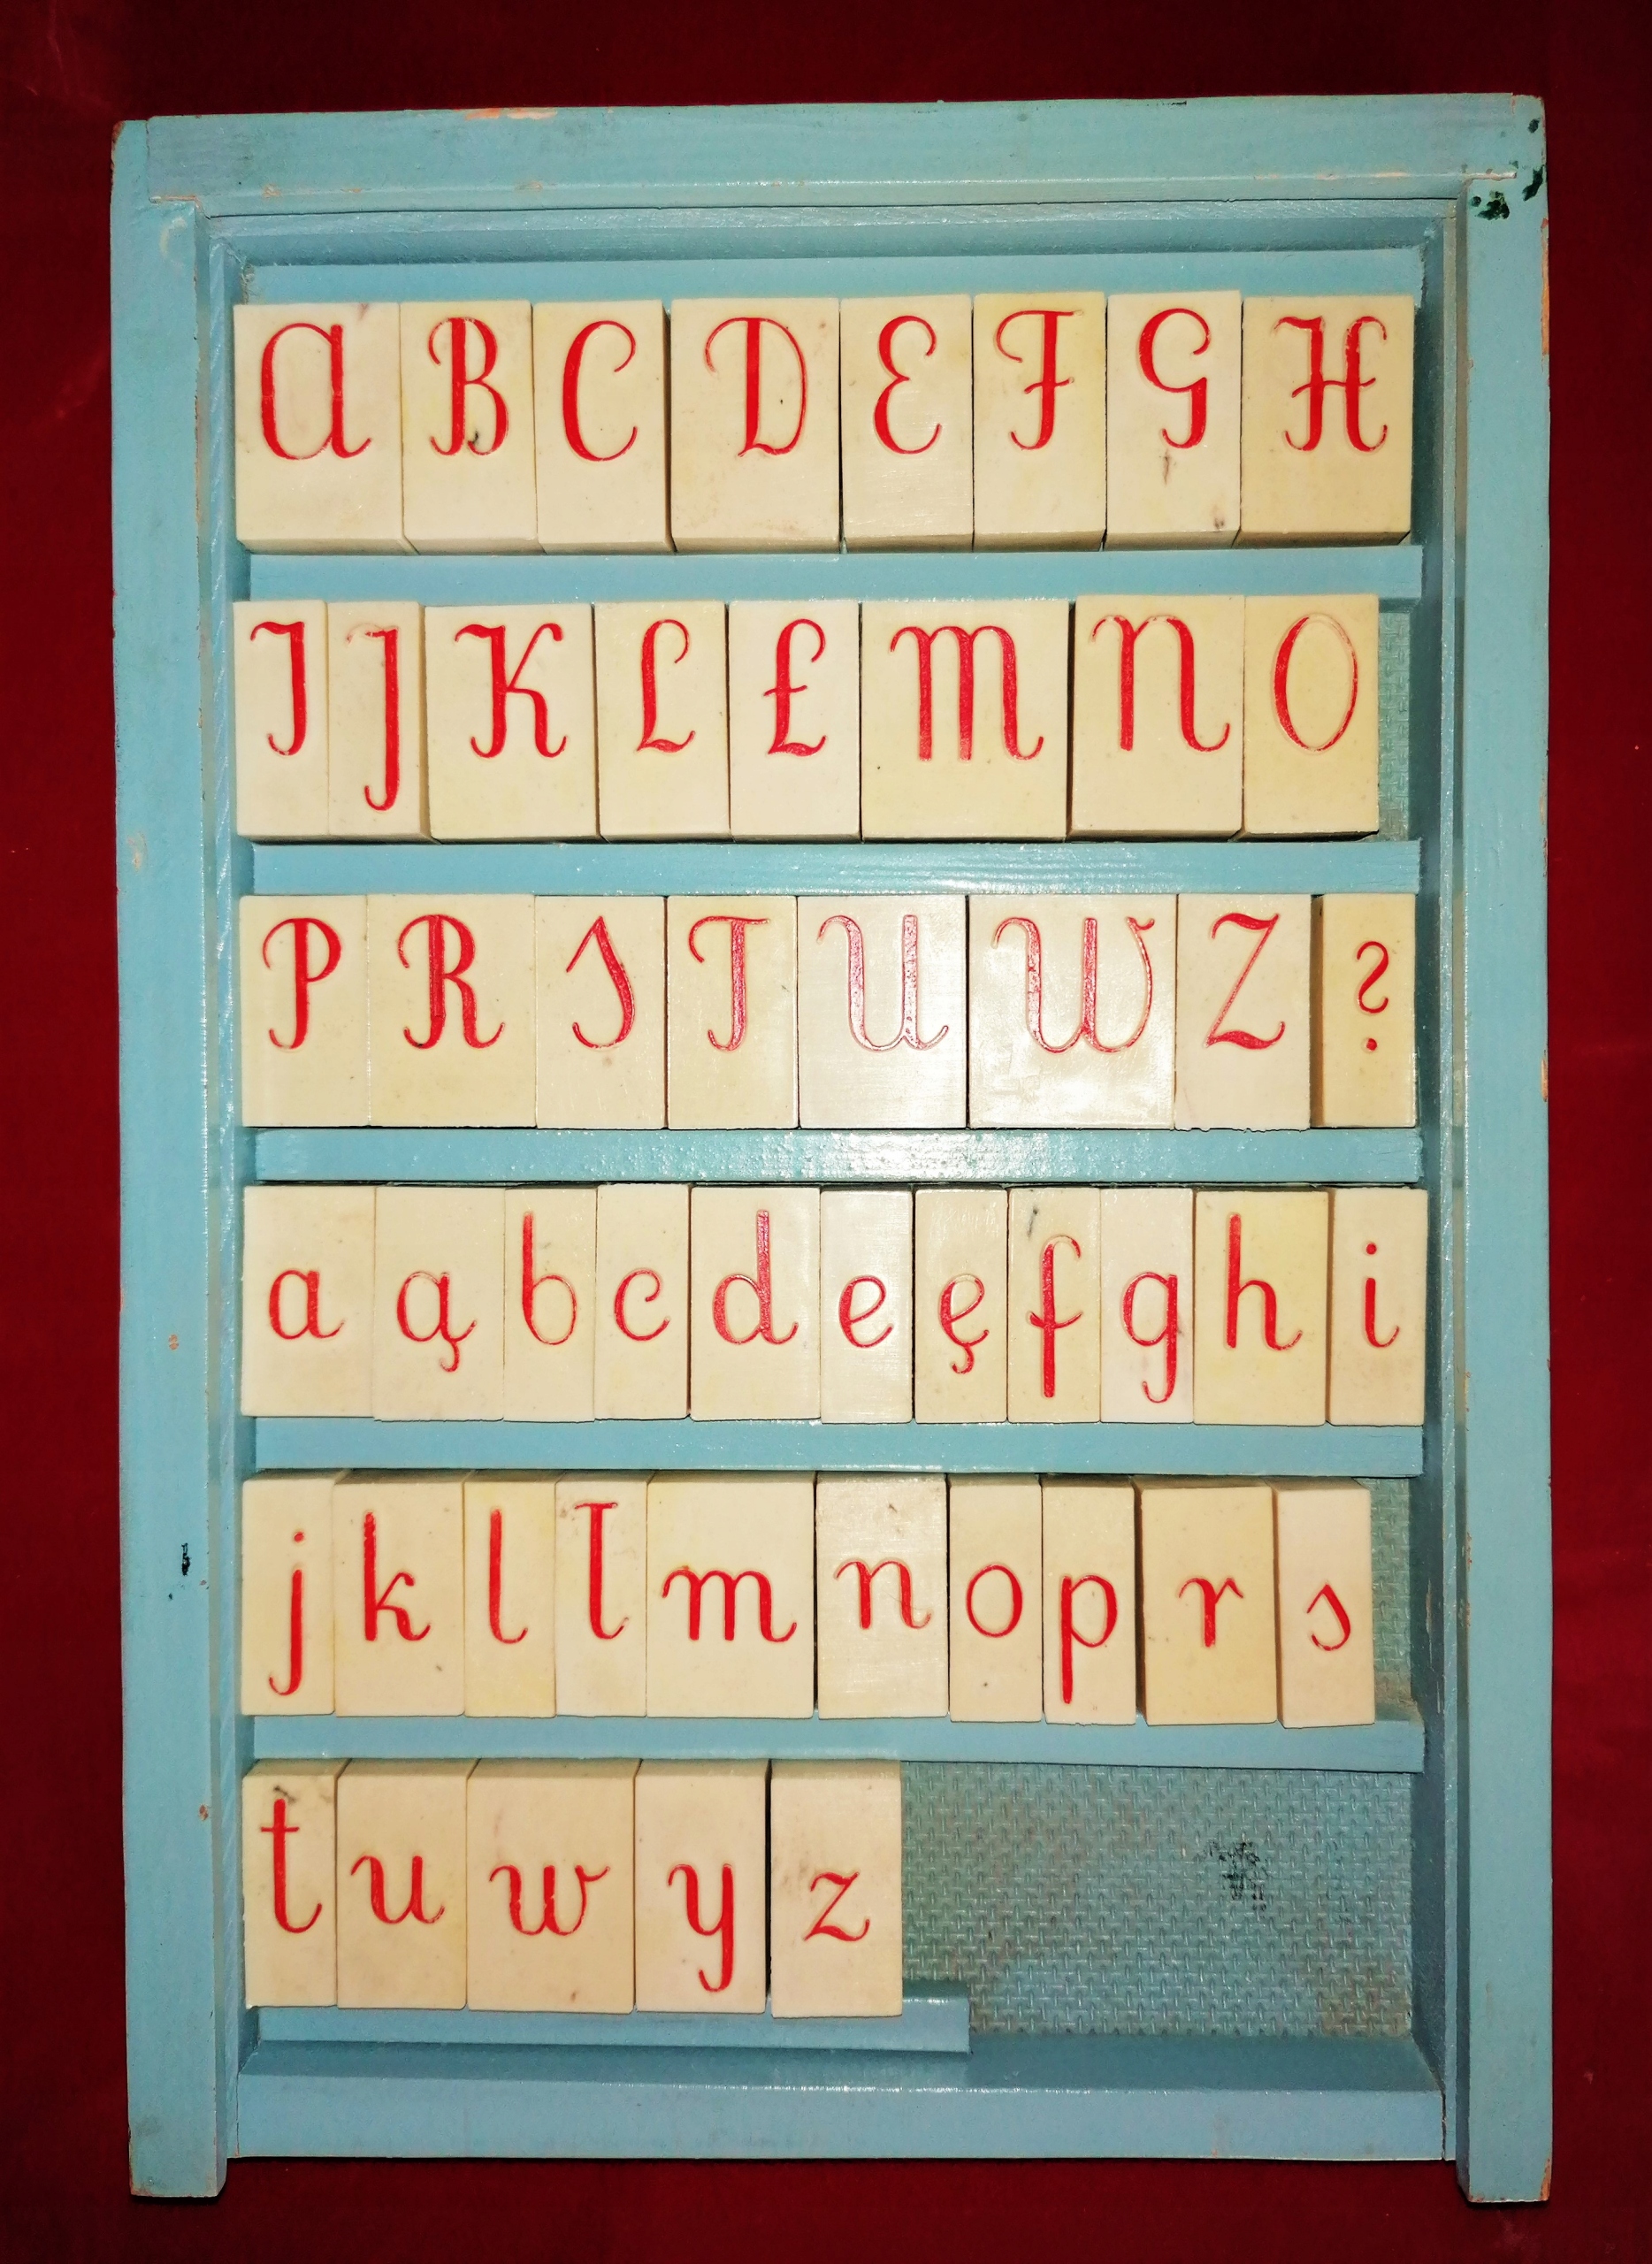 A B C D E F G H
I J K L Ł M N O
P R S T U W Z ?
a ą b c d e ę f g h i
j k l ł m n o p r s
t u w y z